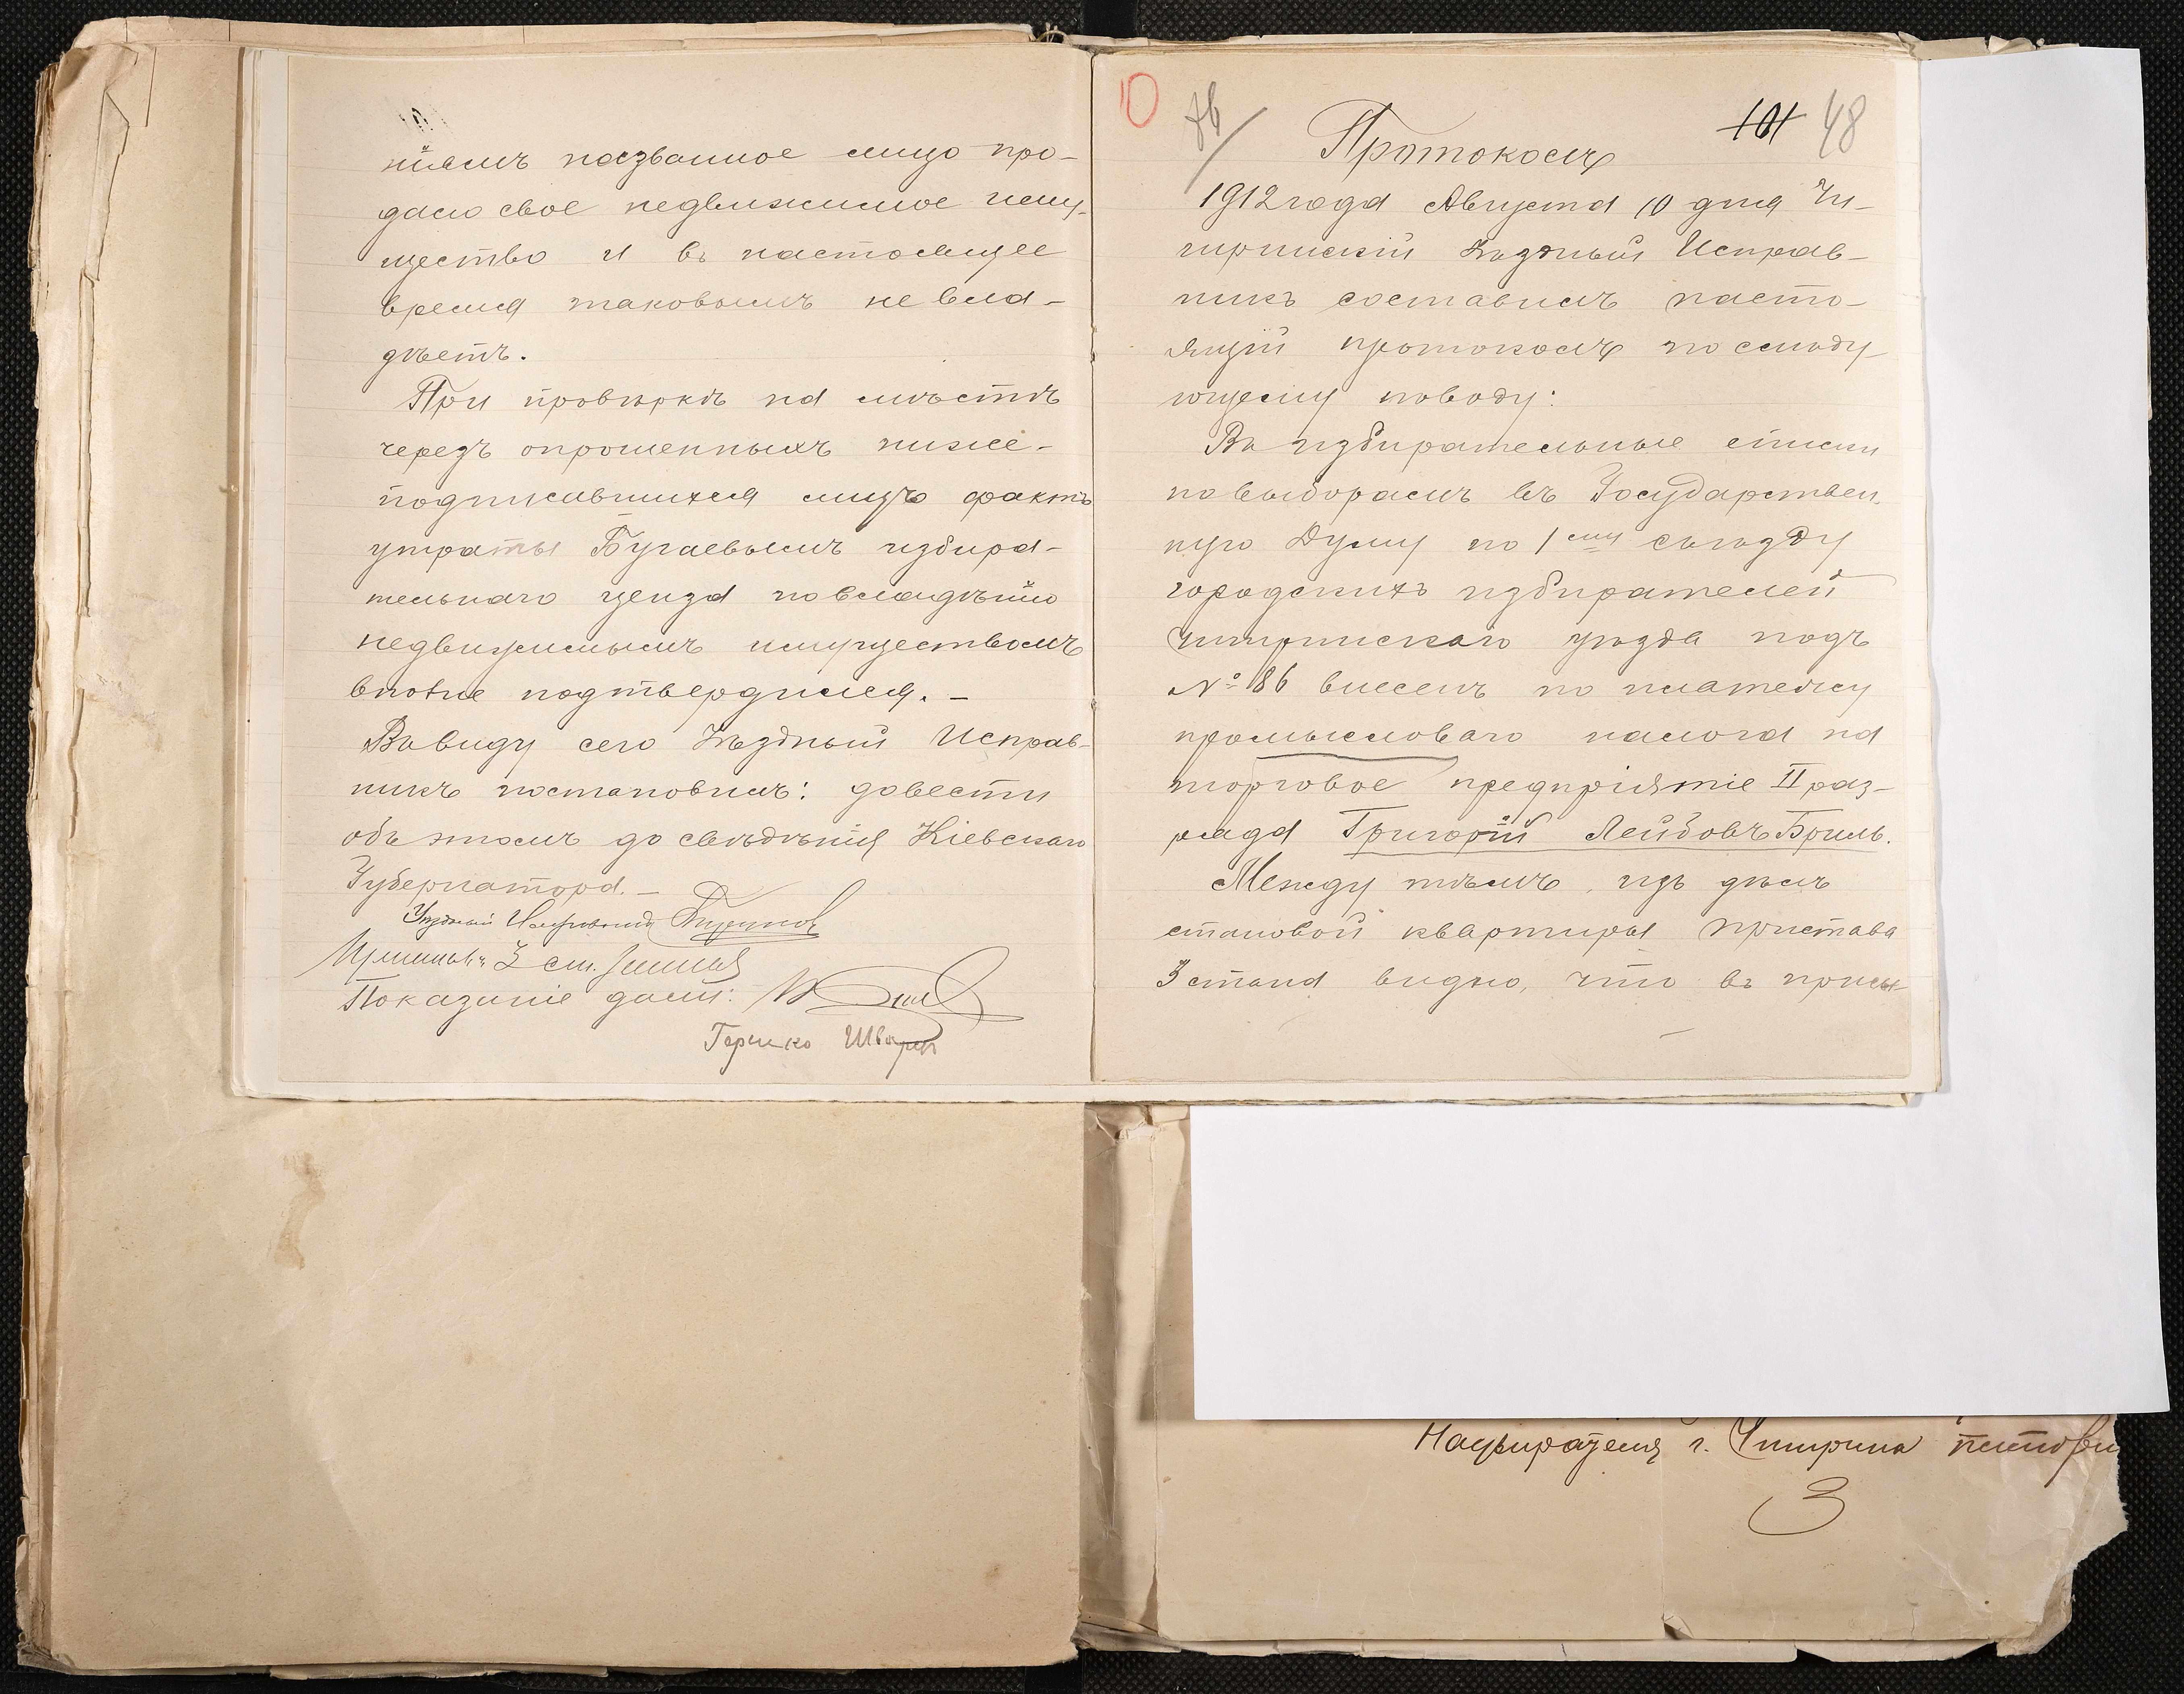 ніемъ названное лицо про-
дало свое недвижимое иму-
щество и въ настоящее
время таковымъ не вла-
дѣетъ.
При провѣркѣ на мѣстѣ
черезъ опрошенныхъ ниже-
подписавшихся лицъ фактъ
утраты Бугаевымъ избира-
тельнаго ценза по владѣнію
недвижимымъ имуществомъ
вполне подтвердился. –
Въ виду сего Уѣздный Исправ-
никъ постановилъ: довести
объ этомъ до свѣдѣнія Кіевскаго
Губернатора. –
Уѣздный Исправникъ
Приставъ 3 ст.
Показаніе дали:
Гершко Шварцъ
10 76/ 101 48
Протоколъ
1912 года Августа 10 дня Чи-
гиринскій Уѣздный Исправ-
никъ составилъ насто-
ящій протоколъ по слѣду-
ющему поводу:
Въ избирательные списки
по выборамъ въ Государствен-
ную Думу по 1му съѣзду
городскихъ избирателей
Чигиринскаго уѣзда подъ
№ 86 внесенъ по платежу
промысловаго налога на
торговое предпріятіе II раз-
ряда Григорій Лейбовъ Бриль.
Между тѣмъ, изъ дѣлъ
становой квартиры Пристава
3 стана видно, что въ
г. Чигирина
3